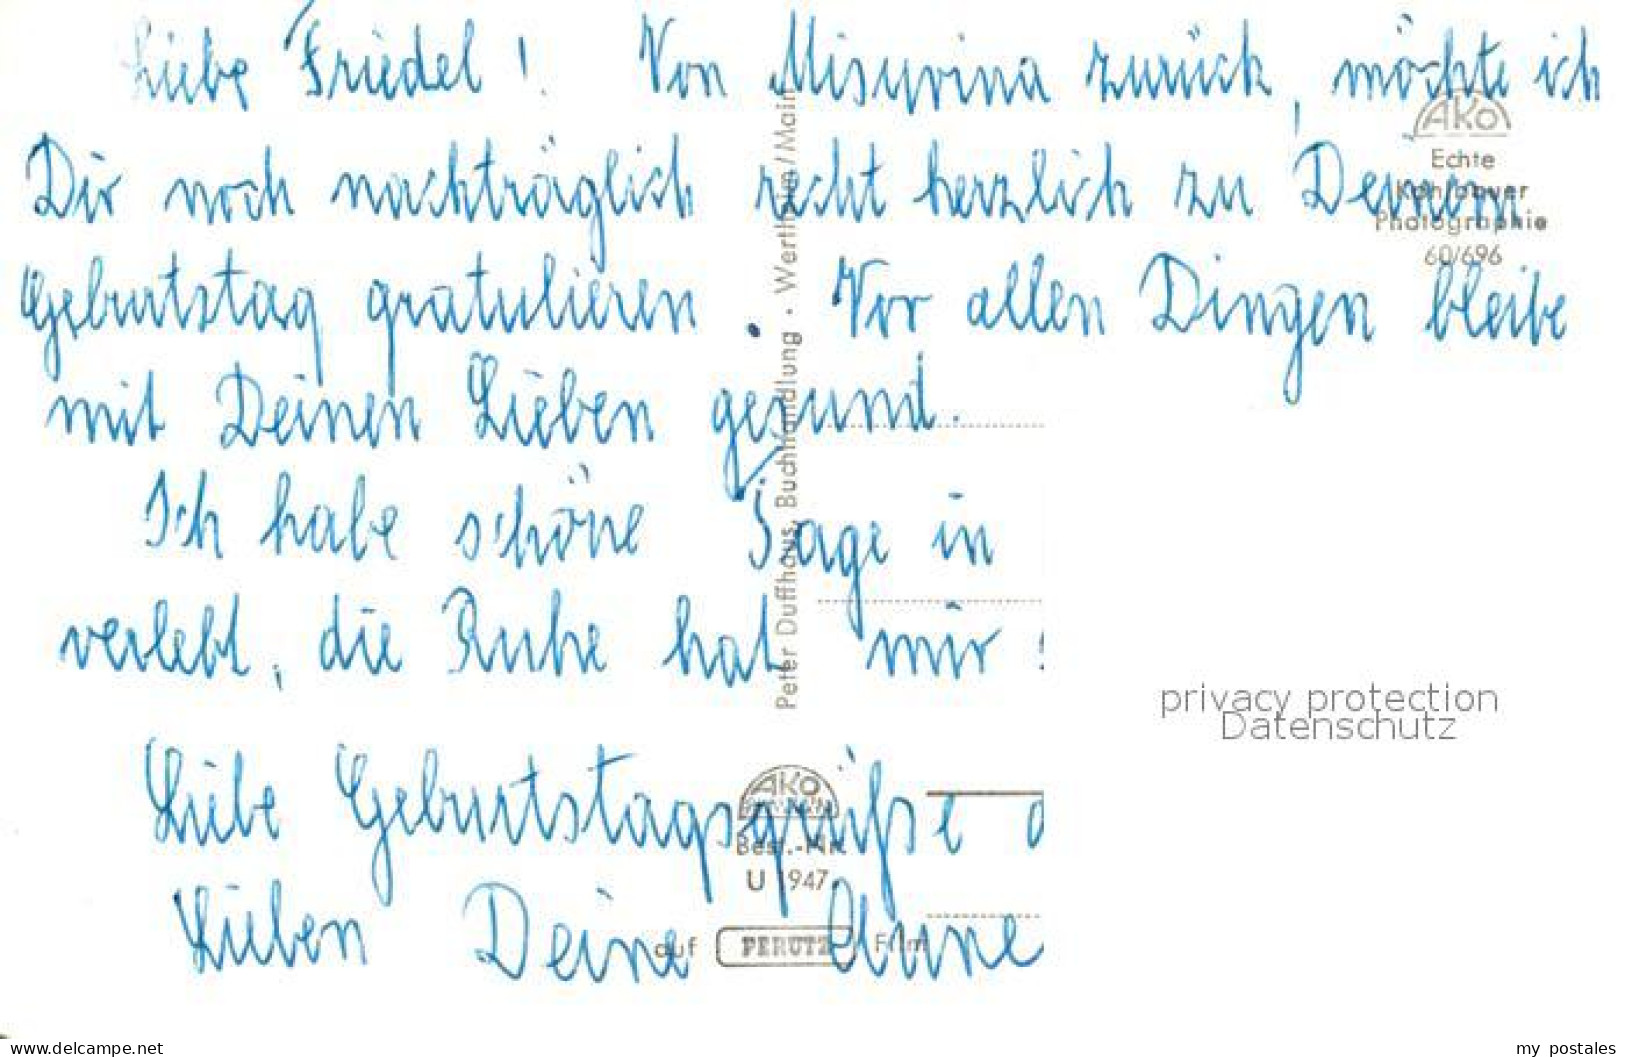 Liebe Friedel! Von Misurina zurück, möchte ich
Dir noch nachträglich recht herzlich zu Deinem
Geburtstag gratulieren. Vor allen Dingen bleibe
mit Deinen Lieben gesund.
Ich habe schöne Tage in
verlebt, die Ruhe hat mir
Liebe Geburtstagsgrüße
Lieben Deine Anne
Peter Duffhaus, Buchhandlung · Wertheim/Main
AKO
Echte
Photographie
60/696
AKO
Best.-Nr.
U 1947
auf PERUTZ Film
privacy protection
Datenschutz
www.delcampe.net
my_postales